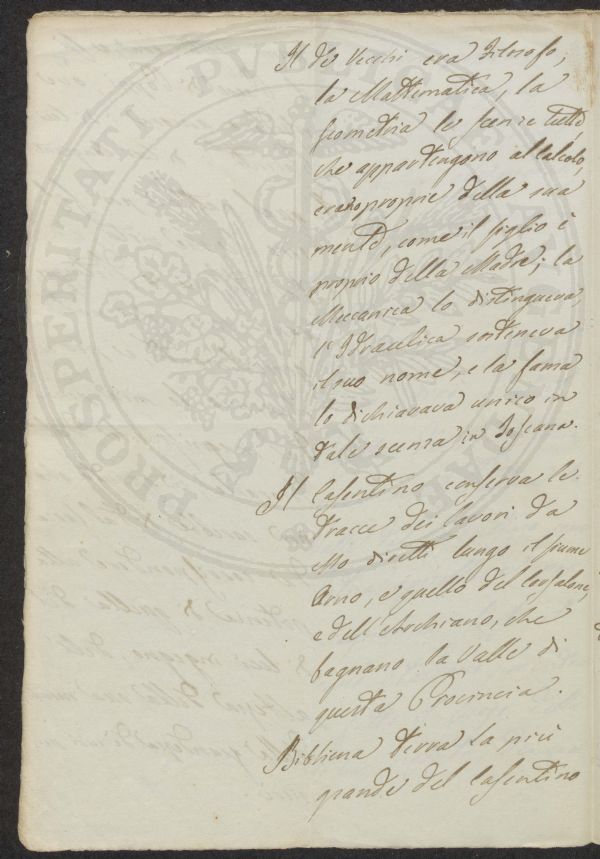 Il de Vecchi era Filosofo,
la Mattematica, la
Geometria le scenze tutte,
che appartengono al calcolo,
erano proprie della sua
mente, come il figlio è
proprio della Madre; la
Meccanica lo distingueva,
l'Idraulica sosteneva
il suo nome, e la fama
lo dichiarava unico in
tale scenza in Toscana.
Il Casentino conserva le
tracce dei lavori da
esso diretti lungo il fiume
Arno, e quello del Corsalone,
e dell'Archiano, che
bagnano la Valle di
questa Provincia.
Bibbiena terra la più
grande del Casentino
PROSPERITATI PUBLICAE